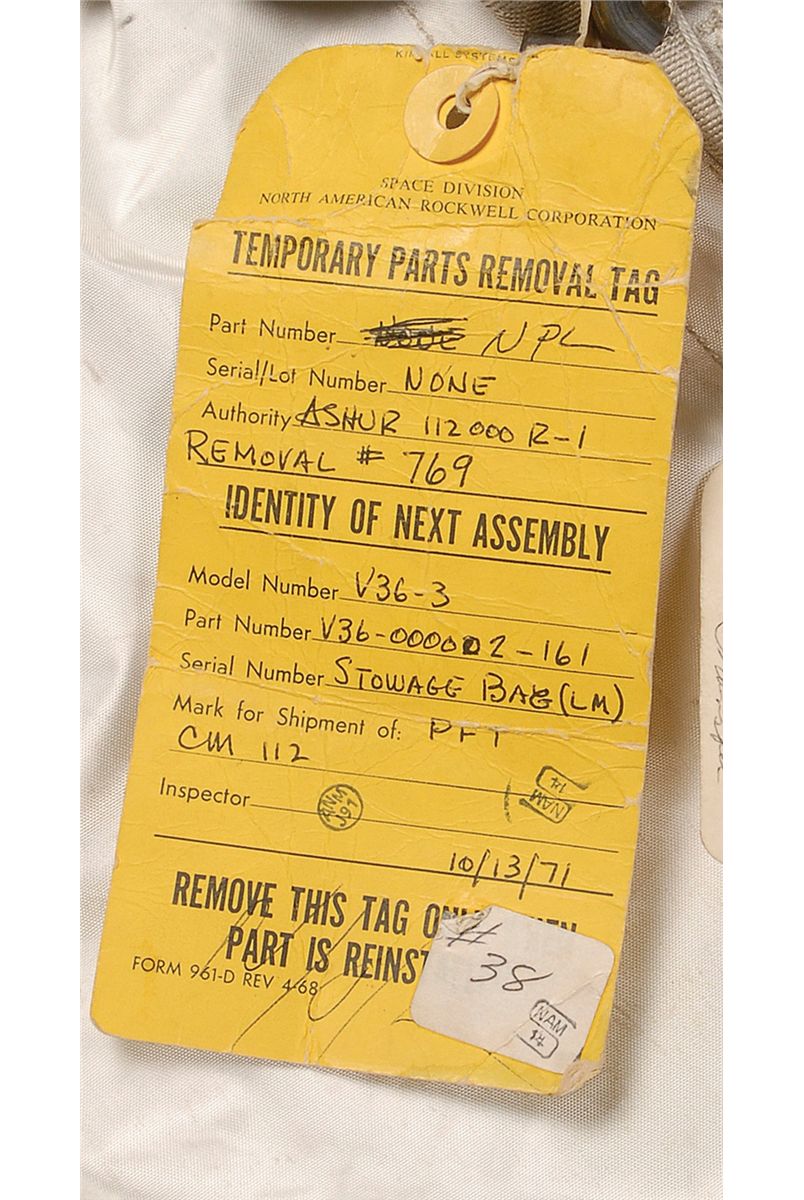 SPACE DIVISION
NORTH AMERICAN ROCKWELL CORPORATION
TEMPORARY PARTS REMOVAL TAG
Part Number NPL
Serial/Lot Number NONE
Authority ASHUR 112000 R-1
REMOVAL # 769
IDENTITY OF NEXT ASSEMBLY
Model Number V36-3
Part Number V36-000002-161
Serial Number STOWAGE BAG (LM)
Mark for Shipment of: PFT
CM 112
NAM
14
Inspector
10/13/71
REMOVE THIS TAG
PART IS
FORM 961-D REV 4-68
# 38
NAM
14